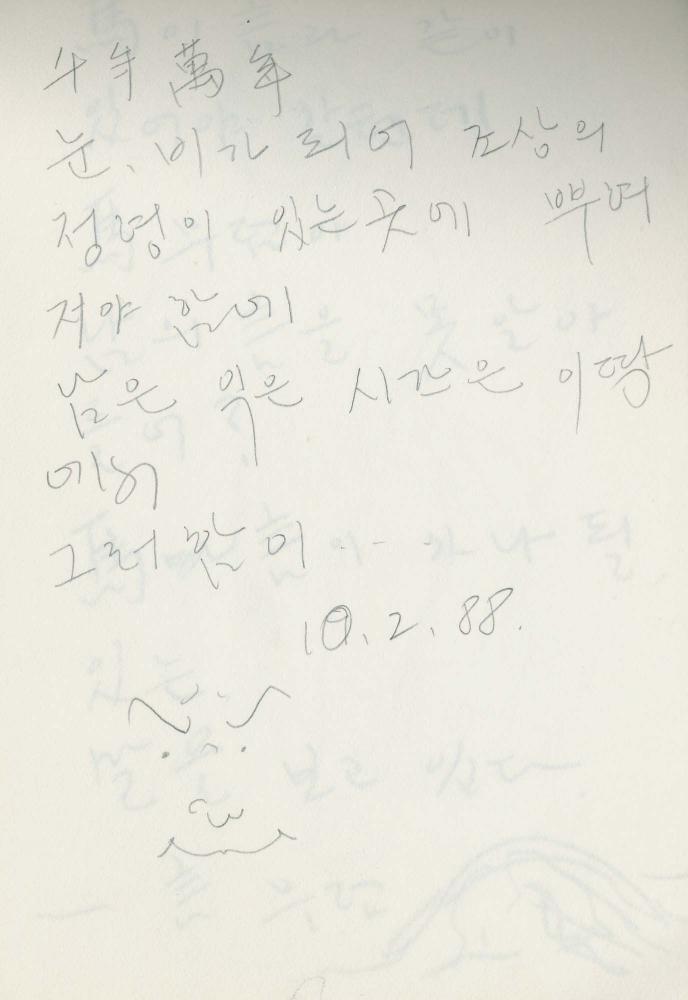 千年 萬年
눈, 비가 되어 조상의
정령이 있는 곳에 뿌려
져야 함에
남은 익은 시간은 이 땅
에서
그러함이 ..-
10. 2. 88.